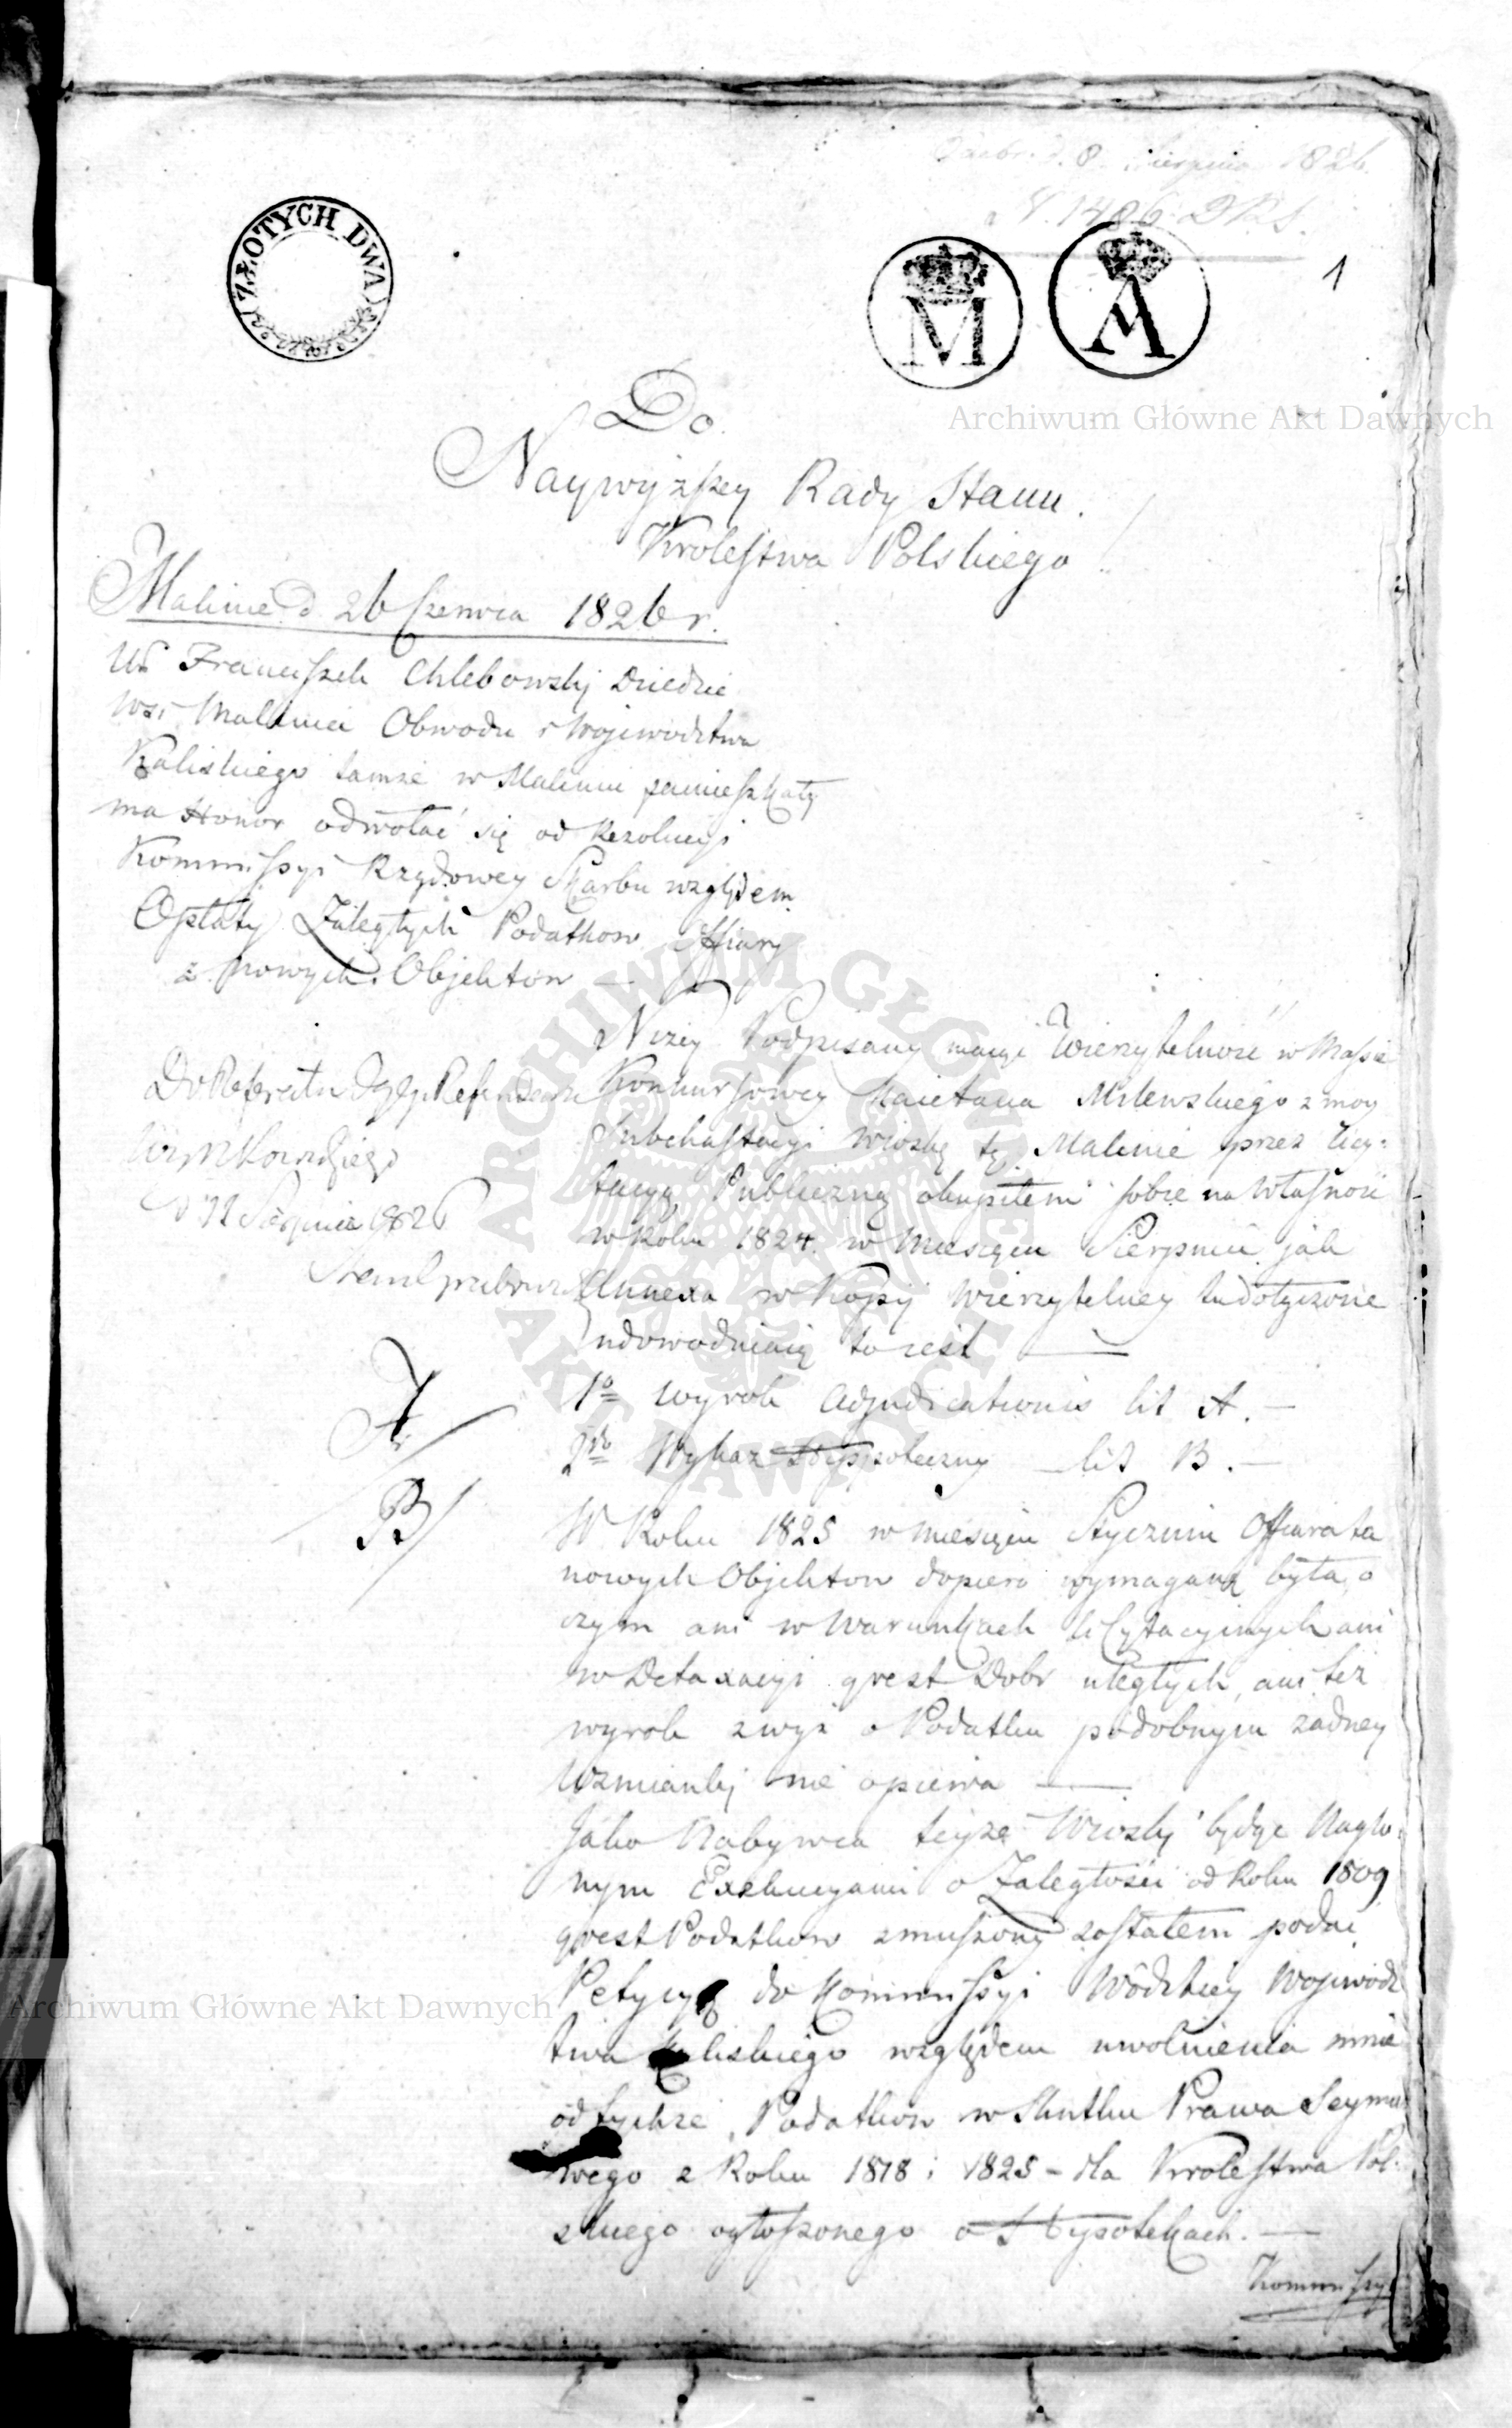 d. 8. Sierpnia 1826.
N. 1406
ZŁOTYCH DWA
M
A
1
Do
Naywyższey Rady Stanu
Krolestwa Polskiego
Malinie d. 26 Czerwca 1826 r.
Ur Franciszek Chlebowskj Dziedzic
wsi Malinia Obwodu i Wojewodztwa
Kaliskiego tamże w Malinii zamieszkały
ma Honor odwołać się od Rezolucyi
Kommissyi Rządowey Skarbu względem
Opłaty Zaległych Podatkow Offiary
z nowych Objektow —
Do Referatu Refendarza
d 12 Sierpnia 1826
Niżey Podpisany maiąc Wierzytelność w Massie
Konkursowey Kaietana Milewskiego z moy
Subchastacyi wioskę tę Malinie przez Licy-
tacyą Publiczną okupiłem sobie na Własność
w Roku 1824. w Miesiącu Sierpniu jak
Annexa w Kopij Wierzytelney tu dołączone
udowodniaią to iest —
1o wyrok Adjudicationis lit A. —
2do Wykaz Hyppoteczny — lit B. —
A/
B/
W Roku 1825 w miesiącu Styczniu Offiara ta
nowych Objektow dopiero wymaganą była, o
czym ani w Warunkach licytacyinych ani
w Detaxacyi qvest Dobr uległych, ani też
wyrok zwyż o Podatku podobnym żadney
Wzmiankj nie opiewa —
Jako Nabywca teyże Wioskj będąc Naglo-
nym Exekucyami o Zaległości od Roku 1809
qvest Podatkow zmuszony zostałem podać
Petycyą do Kommissyi Wojewodz
twa Kaliskiego względem uwolnienia mnie
od tychże Podatkow w Skutku Prawa Seymo
wego z Roku 1818 i 1825 – dla Krolestwa Pol-
skiego ogłoszonego o Hypotekach. —
Kommissyi
Archiwum Główne Akt Dawnych
Archiwum Główne Akt Dawnych
ARCHIWUM GŁÓWNE AKT DAWNYCH